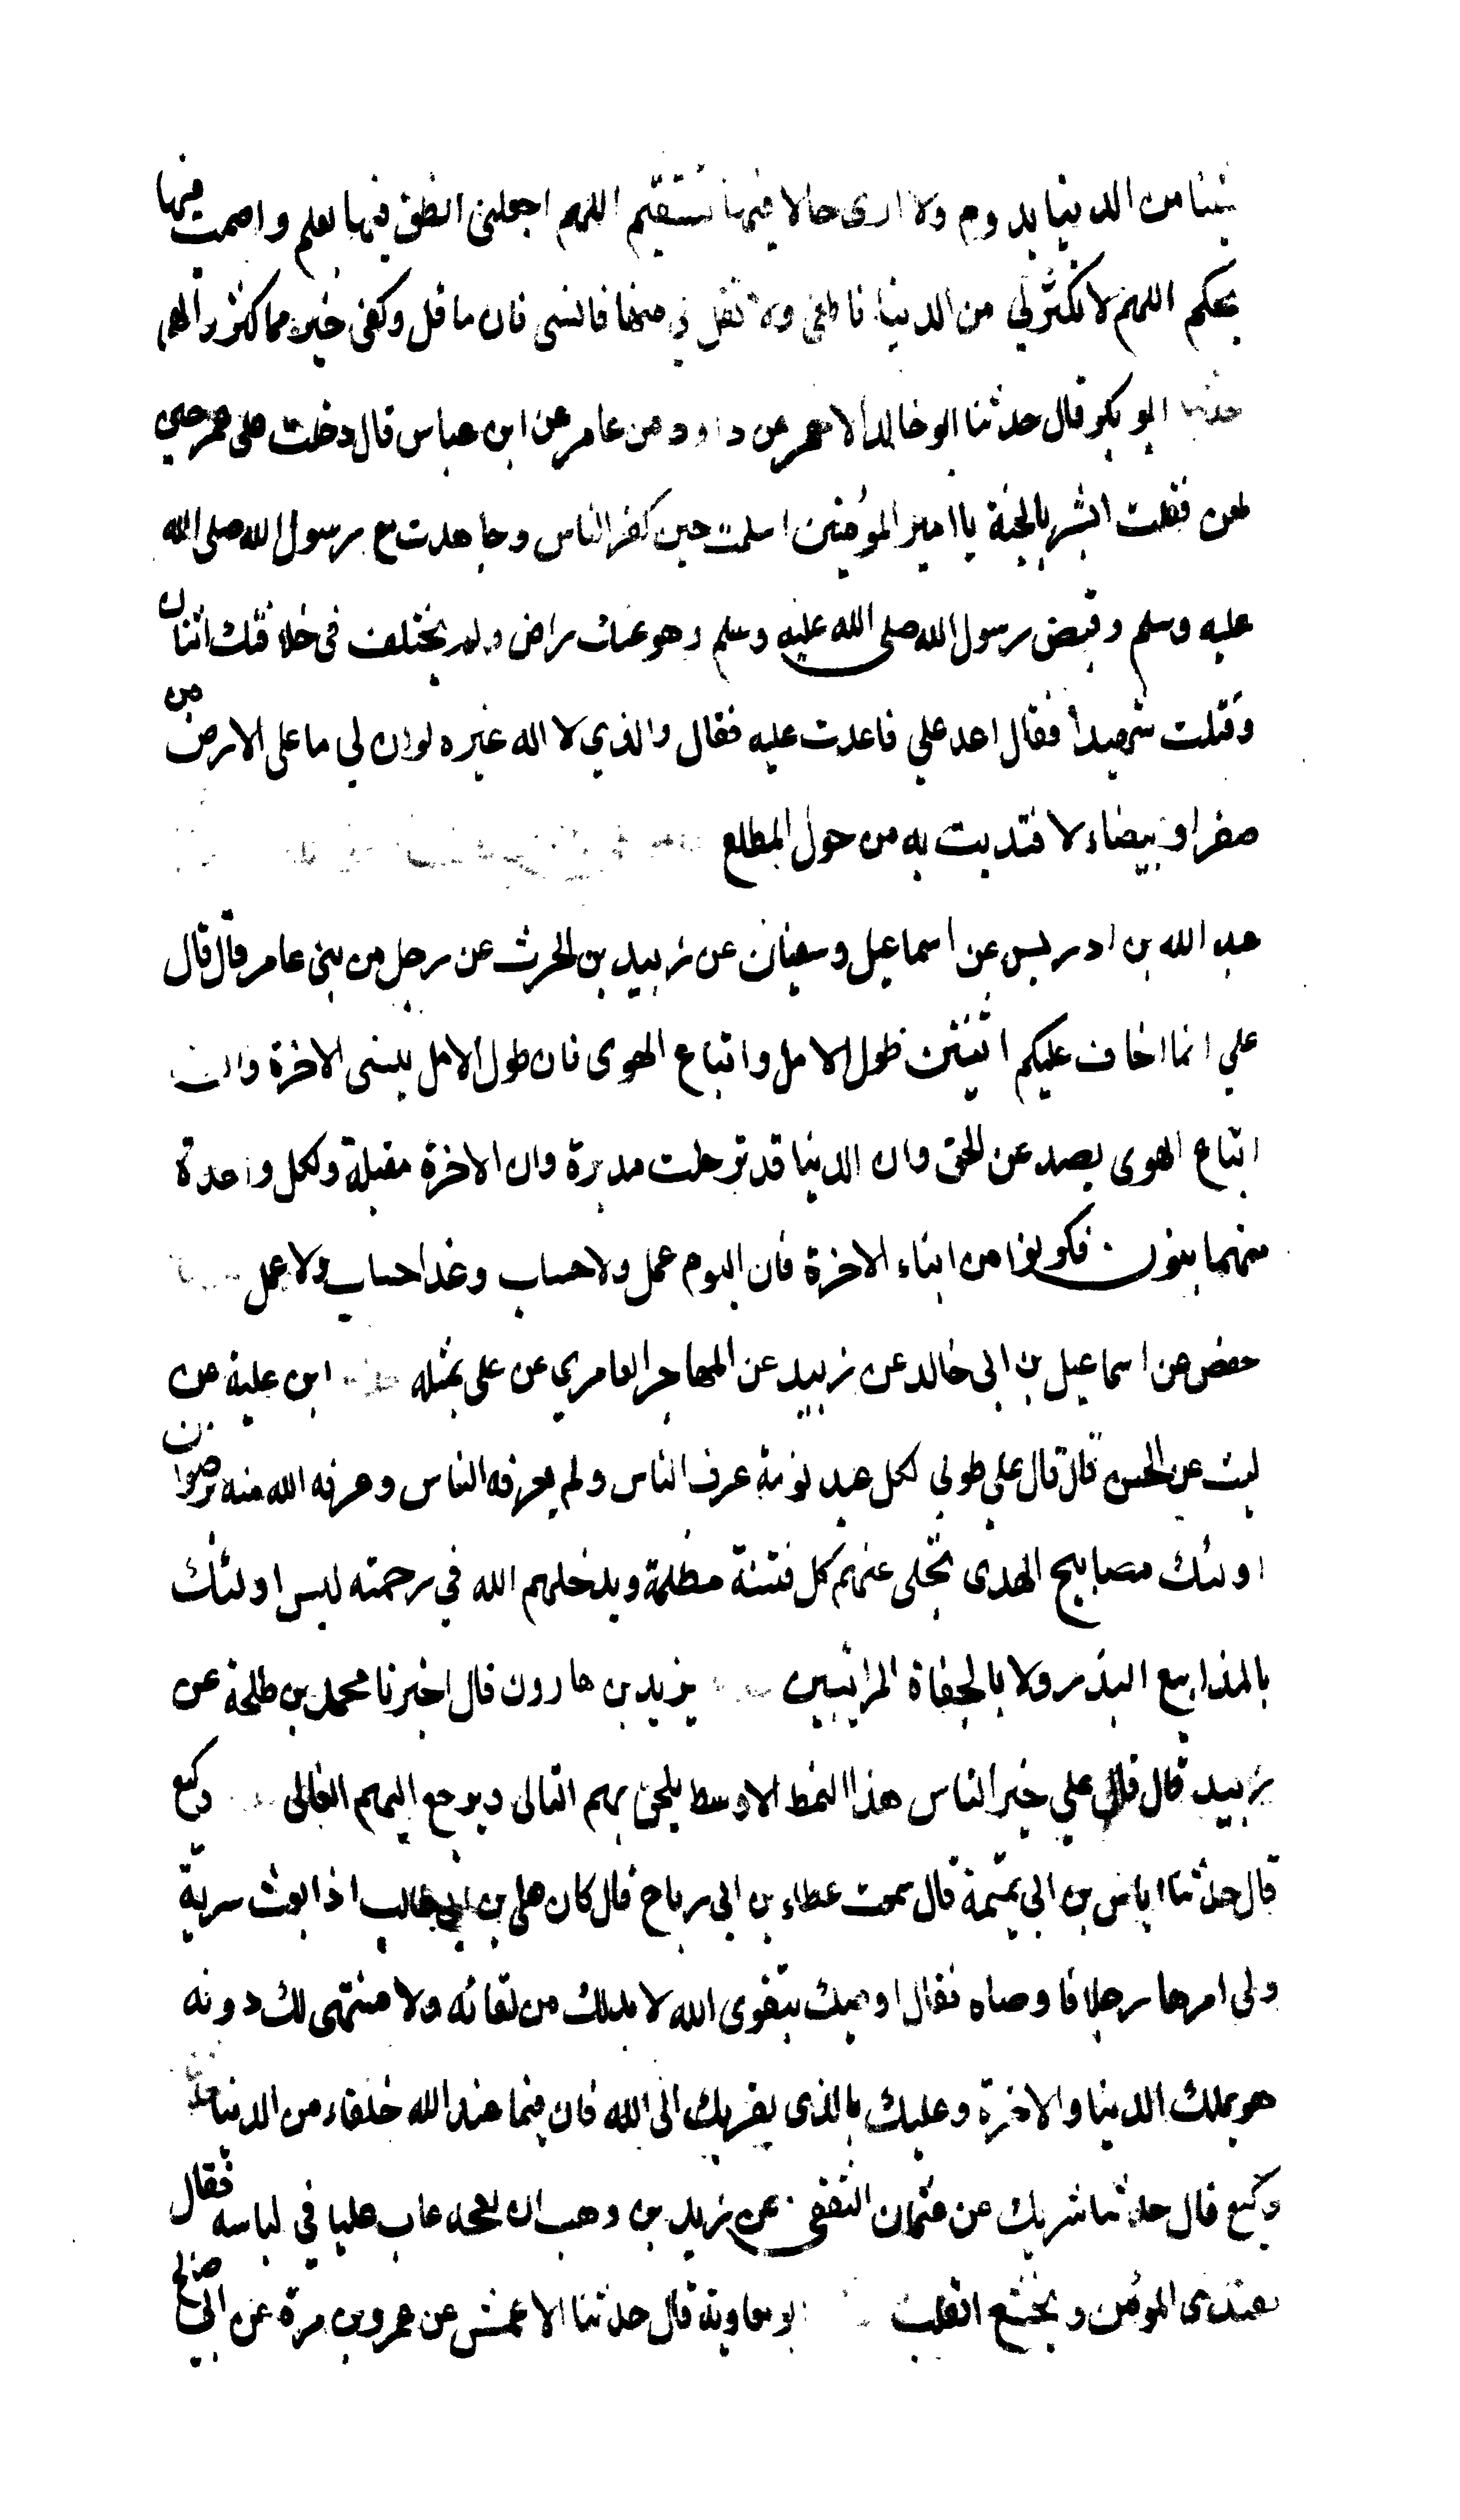 شيئا من الدنيا يدوم ولا ارى حالا فيها تستقيم اللهم اجعلني انطق فيها بعلم واصمت فيها
بحكم اللهم لا تكثر لي من الدنيا فاطغى ولا تقل لي منها فانسى فان ما قل وكفى خير مما كثر والهى
حدثنا ابو بكر قال حدثنا ابو خالد الاحمر عن داود عن عامر عن ابن عباس قال دخلت على عمر حين
طعن فقلت ابشر بالجنة يا امير المؤمنين اسلمت حين كفر الناس وجاهدت مع رسول الله صلى الله
عليه وسلم وقبض رسول الله صلى الله عليه وسلم وهو عنك راض ولم يختلف في خلافتك اثنان
وقتلت شهيدا فقال اعد علي فاعدت عليه فقال والذي لا اله غيره لو ان لي ما على الارض من
صفرا وبيضاء لافتديت به من حول المطلع
عبد الله بن ادريس عن اسماعيل وسفيان عن زبيد بن الحرث عن رجل من بني عامر قال قال
علي انما اخاف عليكم اثنتين طول الامل واتباع الهوى فان طول الامل ينسى الاخرة وان
اتباع الهوى يصد عن الحق وان الدنيا قد ترحلت مدبرة وان الاخرة مقبلة ولكل واحدة
منهما بنون فكونوا من ابناء الاخرة فان اليوم عمل ولا حساب وغدا حساب ولا عمل
حفص عن اسماعيل بن ابي خالد عن زبيد عن المهاجر العامري عن علي بمثله ابن علية عن
ليث عن الحسن قال قال علي طوبى لكل عبد نومة عرف الناس ولم يعرفه الناس وعرفه الله منه برضوان
اولئك مصابيح الهدى تجلى عنهم كل فتنة مظلمة ويدخلهم الله في رحمته ليس اولئك
بالمذاييع البذر ولا بالجفاة المرائيين يزيد بن هارون قال اخبرنا محمد بن طلحة عن
زبيد قال قال علي خير الناس هذا النمط الاوسط يلحق بهم التالي ويرجع اليهم الغالي وكيع
قال حدثنا اياس بن ابي تميمة قال سمعت عطاء بن ابي رباح قال كان علي بن ابي طالب اذا بعث سرية
ولى امرها رجلا فاوصاه فقال اوصيك بتقوى الله لا بد لك من لقائه ولا منتهى لك دونه
هو يملك الدنيا والاخرة وعليك بالذي يقربك الى الله فان فيما عند الله خلفاء من الدنيا
وكيع قال حدثنا شريك عن عثمان الثقفي عن زيد بن وهب ان بعجه عاب عليا في لباسه فقال
يقتدى المؤمن ويخشع القلب ابو معاوية قال حدثنا الاعمش عن عمرو بن مرة عن ابي صالح